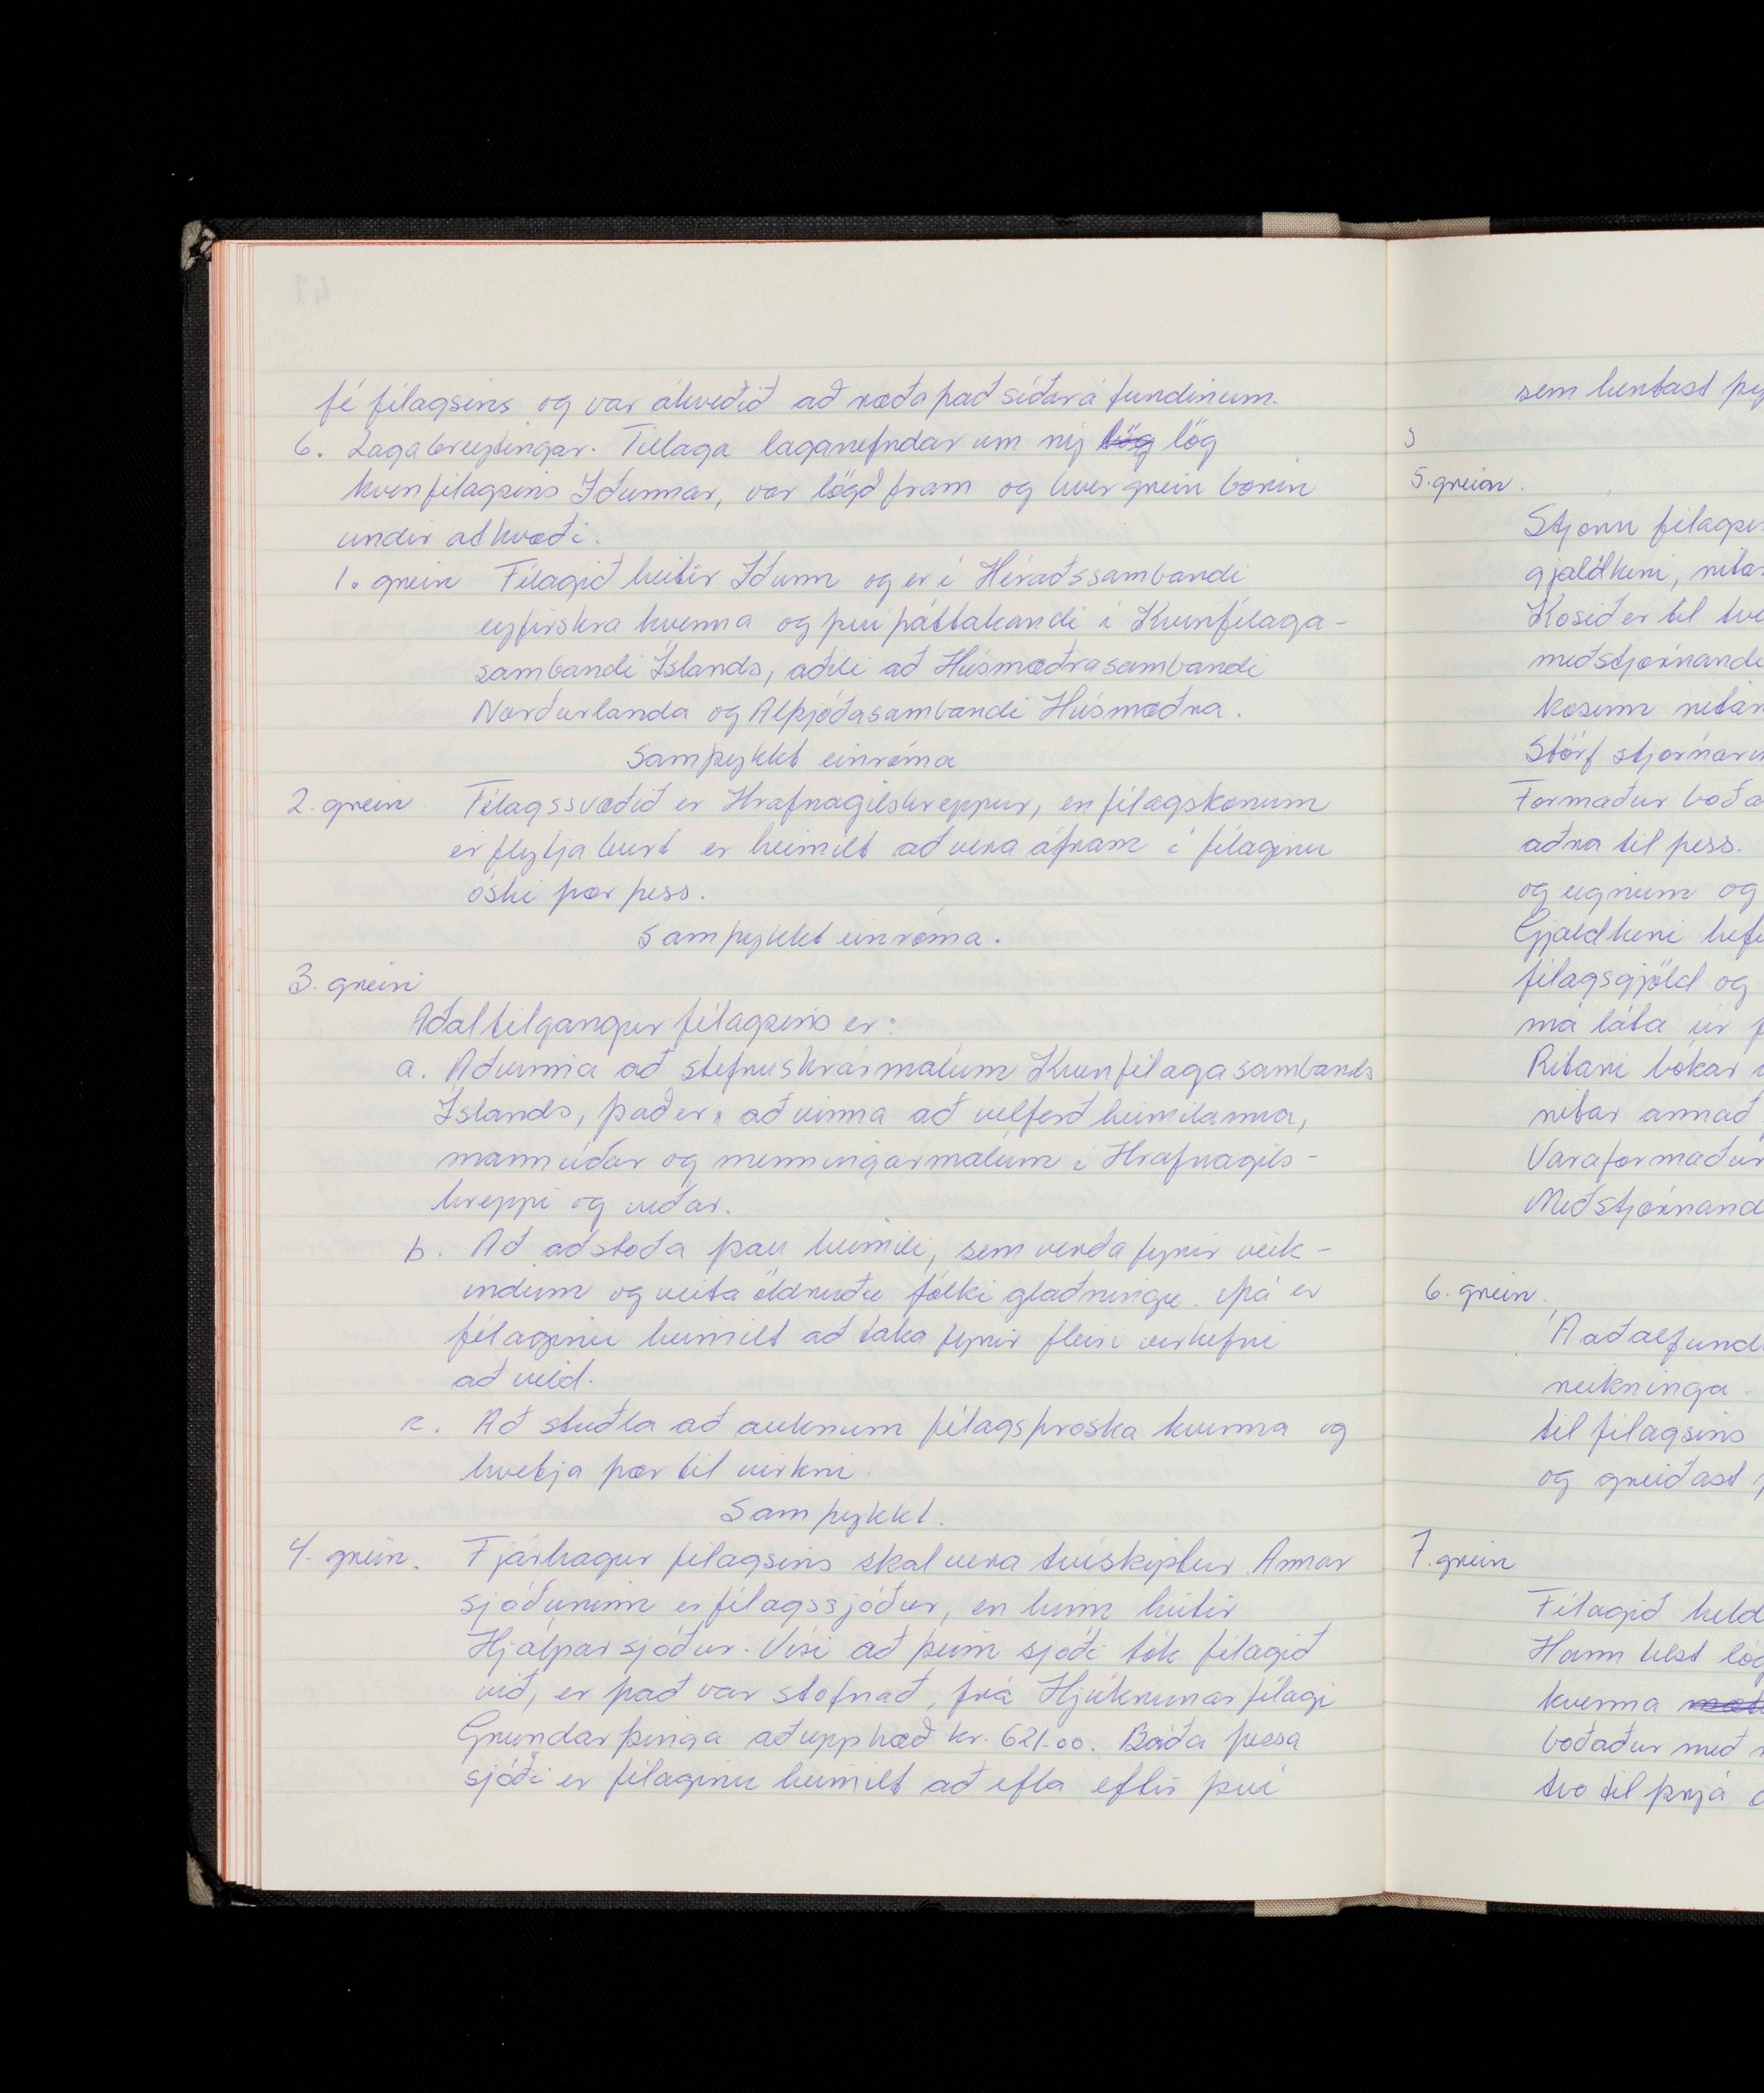 fé félagsins og var ákveðið að ræða það síðar á fundinum.
6. Lagabreytingar. Tillaga laganefndar um ný lög lög
kvenfélagsins Iðunnar, var lögð fram og hver grein borin
undir atkvæði.
1. grein Félagið heitir Iðunn og er í Héraðssambandi
eyfirskra kvenna og því þáttakandi í Kvenfélaga-
sambandi Íslands, aðili að Húsmæðrasambandi
Norðurlanda og Alþjóðasambandi Húsmæðra.
Samþykkt einróma
2. grein Félagssvæðið er Hrafnagilshreppur, en félagskonum
er flytja burt er heimilt að vera áfram í félaginu
óski þær þess.
Samþykkt einróma.
3. grein
Aðaltilgangur félagsins er:
a. Að vinna að stefnuskrármálum Kvenfélagasambands
Íslands, það er, að vinna að velferð heimilanna,
mannúðar og menningarmálum í Hrafnagils-
hreppi og víðar.
b. Að aðstoða þau heimili, sem verða fyrir veik-
indum og veita öldruðu fólki glaðningu. Þá er
félaginu heimilt að taka fyrir fleiri verkefni
að vild.
c. Að stuðla að auknum félagsþroska kvenna og
hvetja þær til virkni.
Samþykkt.
4. grein. Fjárhagur félagsins skal vera tvískiptur. Annar
sjóðurinn er félagssjóður, en hinn heitir
Hjálparsjóður. Vísi að þeim sjóði tók félagið
við, er það var stofnað, frá Hjúkrunarfélagi
Grundarþinga að upphæð kr. 621.00. Báða þessa
sjóði er félaginu heimilt að efla eftir því
sem hentast þy
5. grein.
Stjórn félagsi
gjaldkeri, ritar
Kosið er til tve
meðstjórnandi
kosinn ritar
Störf stjórnarin
Formaður boða
aðra til þess.
og eignum og
Gjaldkeri hef
félagsgjöld og
má láta úr f
Ritari bókar
ritar annað
Varaformaður
Meðstjórnand
6. grein.
Á aðalfundi
reikninga.
til félagsins
og greiðast
7. grein
Félagið held
Hann telst lög
kvenna
boðaður með
tvo til þrjá